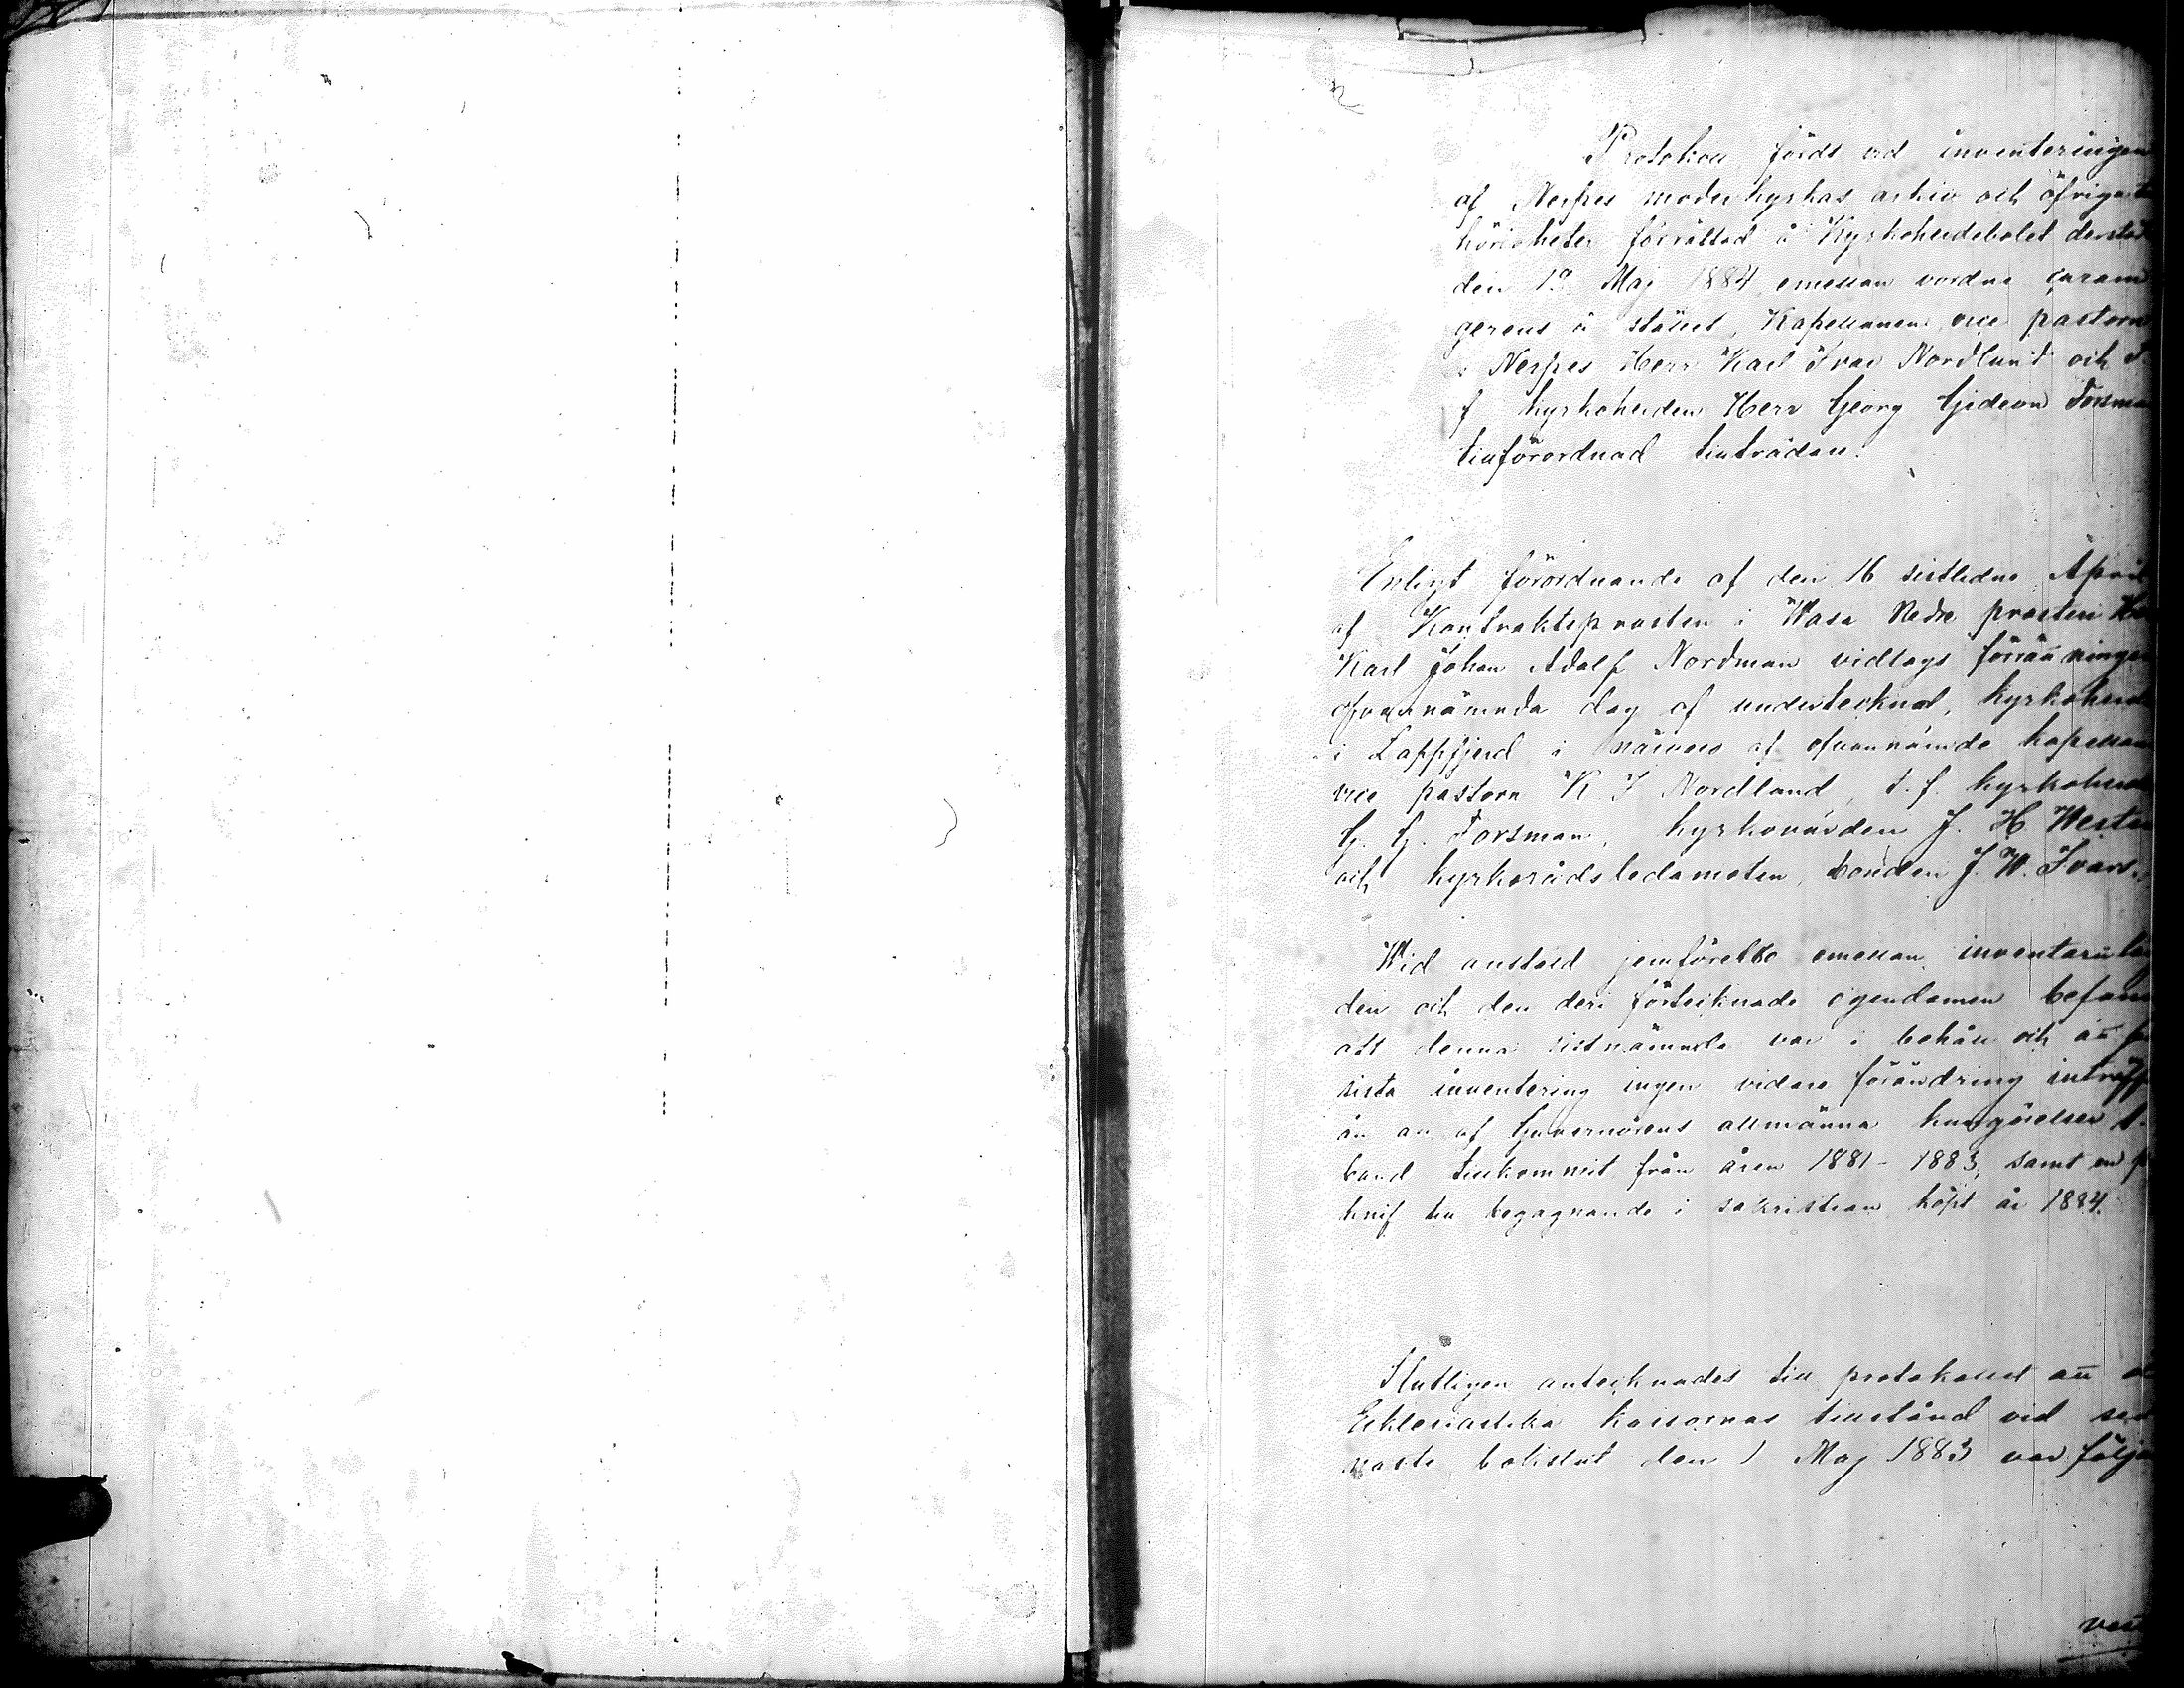 Protokoll förds vid inventeringen
af Nerpes moderkyrkas arkiv och öfriga
hörigheter förrättad å Kyrkoherdebolet derstäd
den 19 Maj 1884 emellan vordne
gerens å stället, Kapellanen vice pastorn
i Nerpes Herr Karl Ivar Nordlund och t.
f kyrkoherden Herr Georg Gideon Forsman
tillförordnad tillträdare.
Enligt förordnande af den 16 sistlidne April
af Kontraktsprosten i Wasa Nedre prosten
Karl Johan Adolf Nordman vidtogs förrättningen
ofvannämnda dag af undertecknad, kyrkoherde
i Lappfjerd i närvaro af ofvannämnde kapellan
vice pastorn K. I Nordlund, t. f. kyrkoherde
G. G. Forsman, kyrkovärden J. H. Wester
och kyrkorådsledamoten, bonden J. W. Ivars.
Wid anstäld jemförelse emellan inventarii
den och den deri förtecknade egendomen befann
att denna sistnämnda var i behåll och att
sista inventering ingen vidare förändring inträff
än att af Guvernörens allmänna kungörelser 1.
band tillkommit från åren 1881-1883, samt en
knif till begagnande i sakristian köpt år 1884.
Slutligen antecknades till protokollet att
Ecklesiastika kassornas tillstånd vid sed
naste bokslut den 1 Maj 1883 var följan